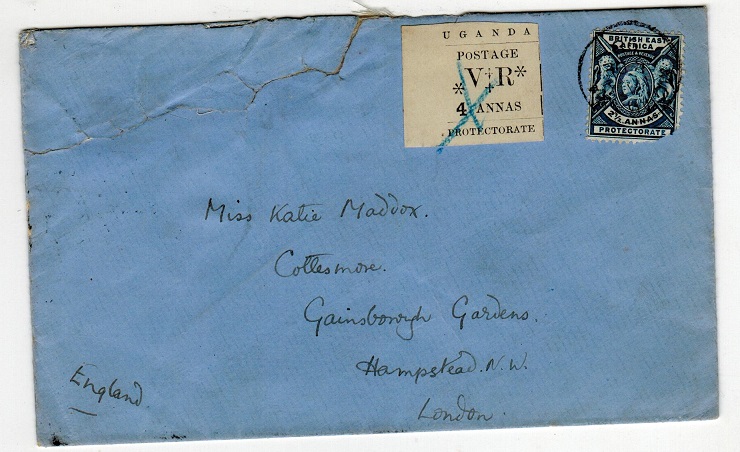 UGANDA
POSTAGE
*V+R*
4 ANNAS
PROTECTORATE
BRITISH EAST
AFRICA
POSTAGE & REVENUE
2½ ANNAS
PROTECTORATE
Miss Katie Maddox.
Cottesmore.
Gainsborough Gardens.
Hampstead. N.W.
London.
England